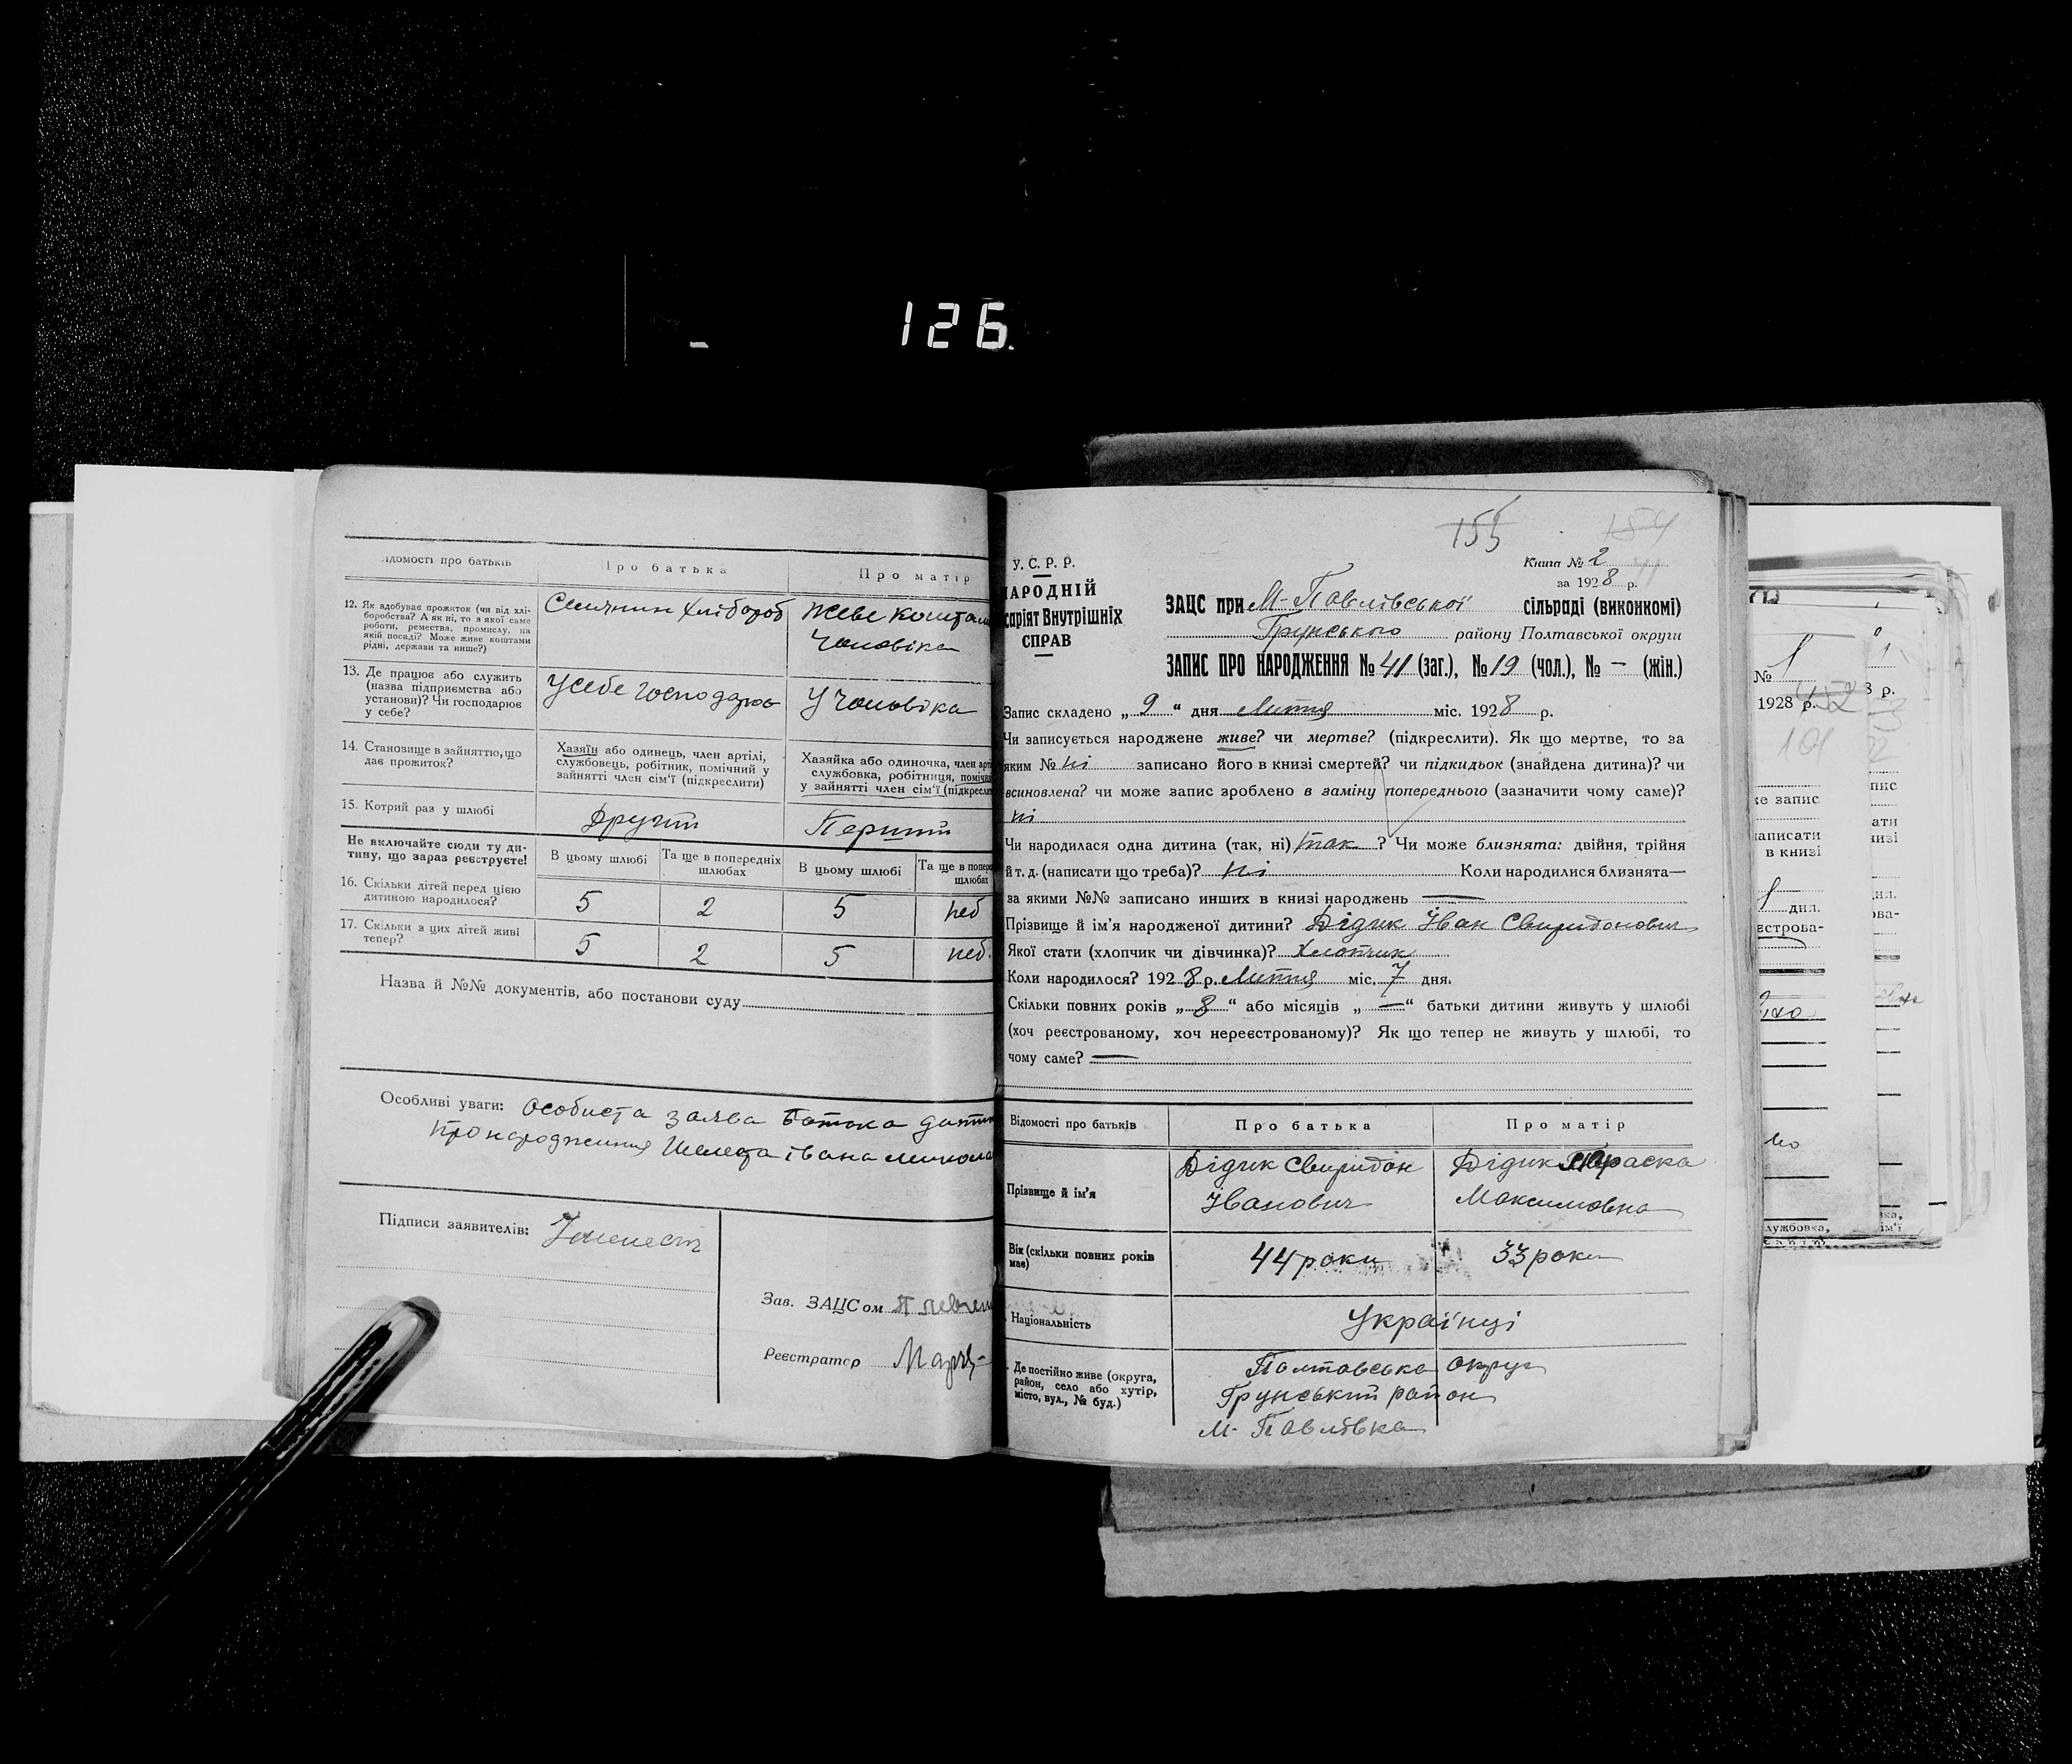 126.
Відомості про батьків
Про батька
Про матір
12. Як здобуває прожиток (чи від хлі-
боробства? А як ні, то з якої саме
роботи, ремества, промислу, на
якій посаді? Може живе коштами
рідні, держави та инше?)
Селянин Хлібороб
Живе коштам
Чоловіка
13. Де працює або служить
(назва підприємства або
установи)? Чи господарює
у себе?
У себе господарює
У Чоловіка
14. Становище в зайняттю, що
дає прожиток?
Хазяїн або одинець, член артілі,
службовець, робітник, помічний у
зайнятті член сім'ї (підкреслити)
Хазяйка або одиночка, член арті
службовка, робітниця, помічна
у зайнятті член сім'ї (підкресли
15. Котрий раз у шлюбі
Другий
Перший
Не включайте сюди ту ди-
тину, що зараз реєструєте!
В цьому шлюбі
Та ще в попередніх
шлюбах
В цьому шлюбі
Та ще в попере
шлюбах
16. Скільки дітей перед цією
дитиною народилося?
5
2
5
неб
17. Скільки з цих дітей живі
тепер?
5
2
5
неб.
Назва й №№ документів, або постанови суду
Особливі уваги: Особиста заява батька дити
про народження Шелеста івана микола
Підписи заявителів:
Зав. ЗАЦСом
Реєстратор
155
154
У.С.Р.Р.
НАРОДНІЙ
саріят Внутрішніх
СПРАВ
Книга № 2
за 1928 р.
ЗАЦС при М-Павлівської сільраді (виконкомі)
Грунського району Полтавської округи
ЗАПИС ПРО НАРОДЖЕННЯ № 41 (заг.), № 19 (чол.), № — (жін.)
Запис складено „ 9 “ дня Липня міс. 1928 р.
Чи записується народжене живе? чи мертве? (підкреслити). Як що мертве, то за
яким № ні записано його в книзі смертей? чи підкидьок (знайдена дитина)? чи
всиновлена? чи може запис зроблено в заміну попереднього (зазначити чому саме)?
ні
Чи народилася одна дитина (так, ні) так ? Чи може близнята: двійня, трійня
й т. д. (написати що треба)? ні Коли народилися близнята—
за якими №№ записано инших в книзі народжень —
Прізвище й ім'я народженої дитини? Дідик Іван Свиридонович
Якої стати (хлопчик чи дівчинка)? Хлопчик
Коли народилося? 1928 р. Липня міс. 7 дня.
Скільки повних років „ 8 “ або місяців „ — “ батьки дитини живуть у шлюбі
(хоч реєстрованому, хоч нереєстрованому)? Як що тепер не живуть у шлюбі, то
чому саме? —
Відомості про батьків
Про батька
Про матір
Прізвище й ім'я
Дідик Свиридон
Іванович
Дідик Параска
Максимовна
Вік (скільки повних років
має)
44 роки
33 роки
Національність
Українці
Де постійно живе (округа,
район, село або хутір,
місто, вул., № буд.)
Полтавська округ
Грунський район
М-Павлівка
№ 1
1928 р.